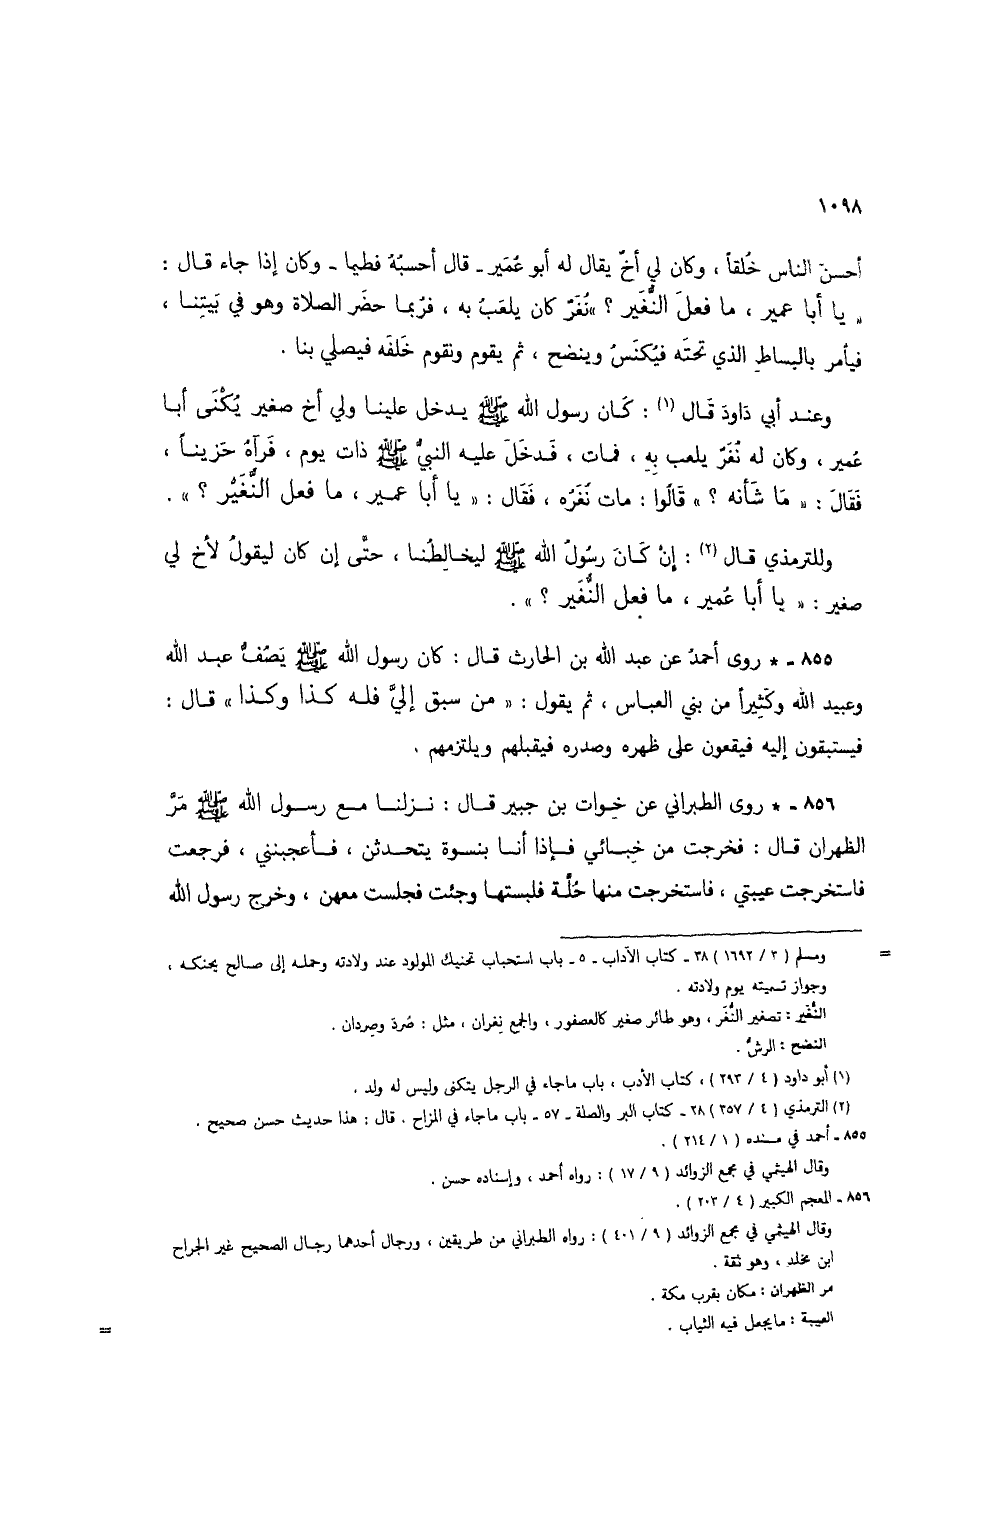 ١٠٩٨
أحسنَ الناس خُلقاً ، وكان لي أخٌ يقال له أبو عُمَير ـ قال أحسبُهُ فطيما ـ وكان إذا جاء قـال :
« يا أبا عمير ، ما فعلَ النُّغَير ؟ »نُغَرٌ كان يلعَبُ به ، فرُبما حضَر الصلاة وهو في بَيتِنـا ،
فيأمر بالبساطِ الذي تحتَه فيُكنَسُ وينضح ، ثم يقوم ونقوم خَلفَه فيصلي بنا .
وعنـد أبي دَاودَ قَال (١) : كَـان رسول الله ﷺ يـدخل علينـا ولي أخ صغير يُكْنَى أبـا
عُمير ، وكان له نُغَرٌ يلعب بِهِ ، فمات ، فَـدخَلَ عليـه النبيُّ ﷺ ذات يوم ، فَرآهُ حَزينـاً ،
فَقَالَ : « مَا شَأنه ؟ » قَالُوا : مات نُغَرُه ، فَقال : « يا أبا عمـير ، ما فعل النُّغَيُر ؟ » .
وللترمذي قـال (٢) : إنْ كَـانَ رسُولُ الله ﷺ ليخـالِطُنـا ، حتَّى إن كان ليقولُ لأخ لي
صغير : « يا أبا عُمير ، ما فعل النُّغَير ؟ » .
٨٥٥ ـ * روى أحمدُ عن عبد الله بن الحارث قـال : كان رسول الله ﷺ يَصُفُّ عبـد الله
وعبيد الله وكَثِيراً من بني العبـاس ، ثم يقول : « من سبق إليَّ فلـه كـذا وكـذا » قـال :
فيستبقون إليه فيقعون على ظهره وصدره فيقبلهم ويلتزمهم .
٨٥٦ ـ * روى الطبراني عن خوات بن جبير قـال : نـزلنـا مـع رسـول الله ﷺ مَرَّ
الظهران قـال : فخرجت من خِبـائي فـإذا أنـا بنسوة يتحـدثن ، فـأعجبنني ، فرجعت
فاستخرجت عيبتي ، فاستخرجت منها حُلَّة فلبستهـا وجئت فجلست معهن ، وخرج رسول الله
= ومسلم ( ٣ / ١٦٩٢ ) ٣٨ ـ كتاب الآداب ـ ٥ ـ باب استحباب تحنيك المولود عند ولادته وحمله إلى صـالح يحنكـه ،
وجواز تسميته يوم ولادته .
النُّغَير : تصغير النُّغَر ، وهو طائر صغير كالعصفور ، والجمع نِغران ، مثل : صُرَد وصِردان .
النضح : الرشُّ .
(١) أبو داود ( ٤ / ٢٩٣ ) ، كتاب الأدب ، باب ماجاء في الرجل يتكنى وليس له ولد .
(٢) الترمذي ( ٤ / ٣٥٧ ) ٢٨ ـ كتاب البر والصلة ـ ٥٧ ـ باب ماجاء في المزاح . قال : هذا حديث حسن صحيح .
٨٥٥ ـ أحمد في مسنده ( ١ / ٢١٤ ) .
وقال الهيثمي في مجمع الزوائد ( ٩ / ١٧ ) : رواه أحمد ، وإسناده حسن .
٨٥٦ ـ المعجم الكبير ( ٤ / ٢٠٣ ) .
وقال الهيثمي في مجمع الزوائد ( ٩ / ٤٠١ ) : رواه الطبراني من طريقين ، ورجال أحدهما رجـال الصحيح غير الجراح
ابن مخلد ، وهو ثقة .
مر الظهران : مكان بقرب مكة .
العيبة : مايجعل فيه الثياب .
=